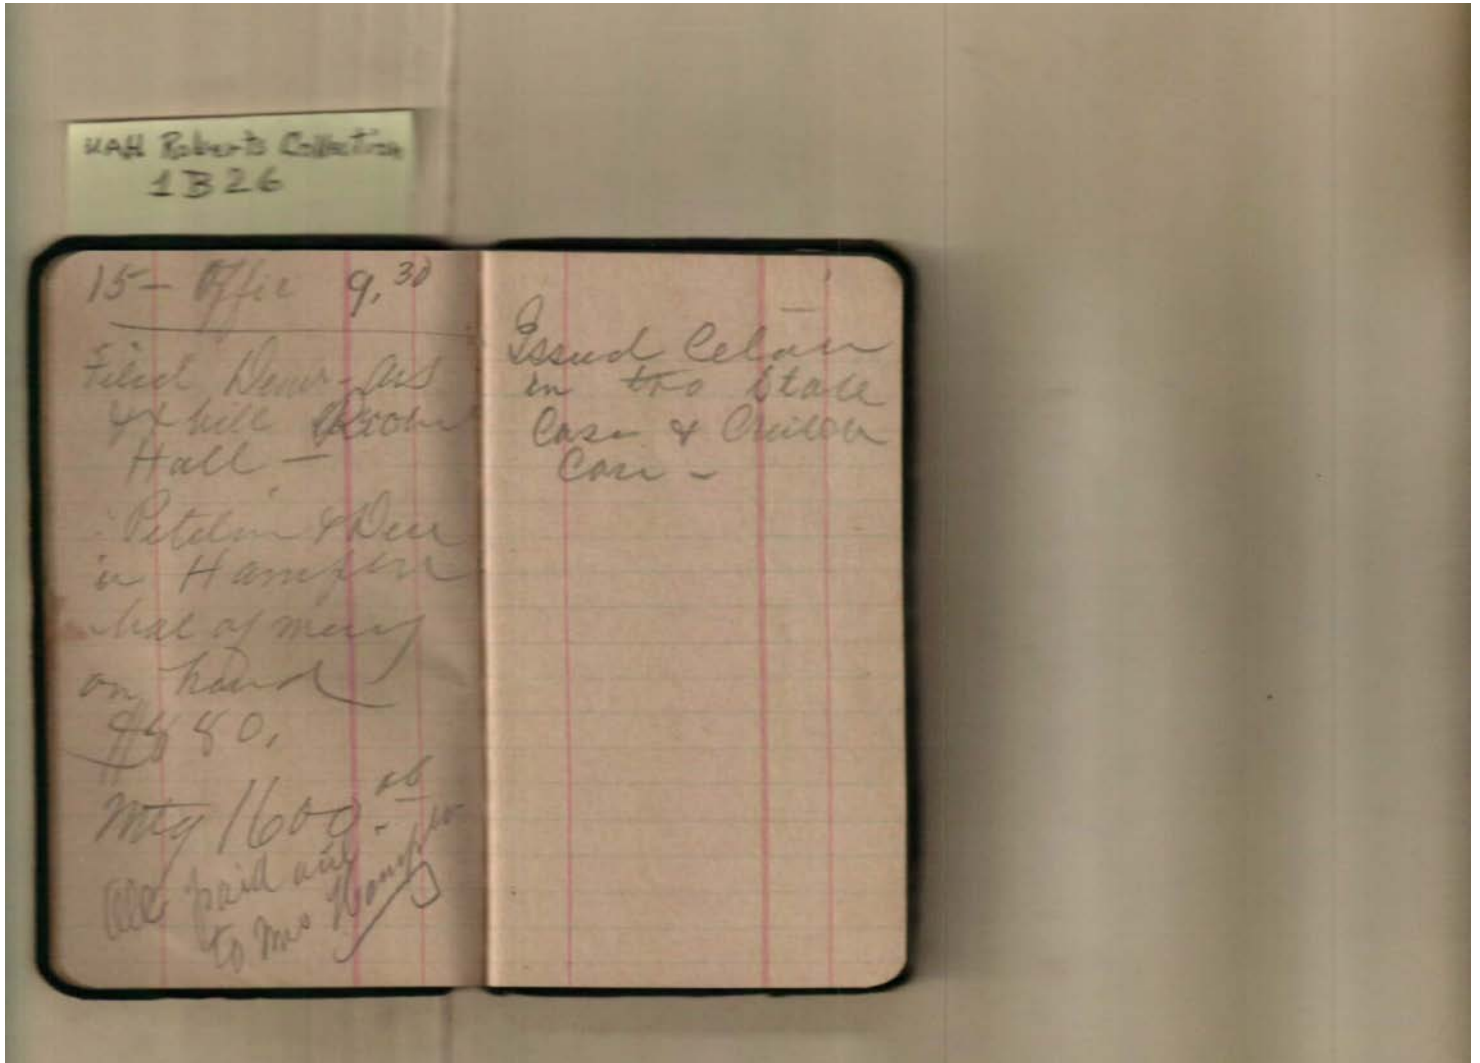 UAH Roberts Collection
1B26
15 – Office 9,30
Filed Demr. Ans
& X bill
Hall –
Petition & Decr
in Hampton
bal of money
on hand
$880,
Mtg 1600.
All paid out
to Mrs Hampton
Issued
in two State
Case &
Case –